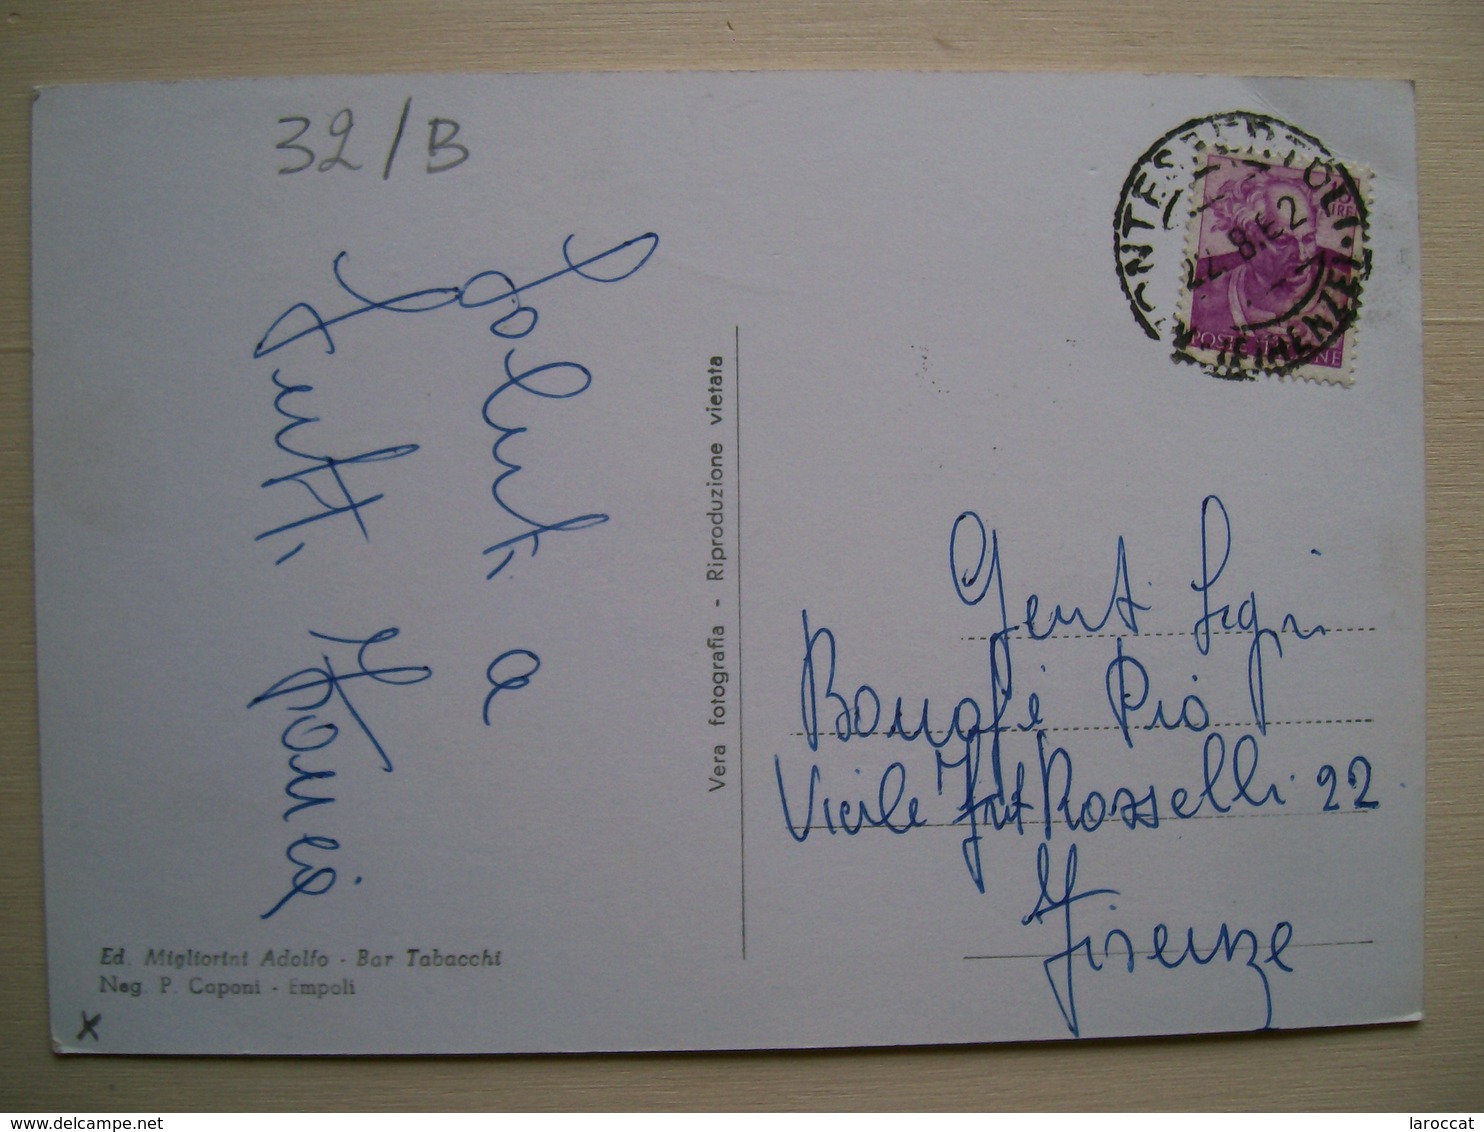 32/B
Saluti a
tutti Franca
Vera fotografia - Riproduzione vietata
Ed. Migliorini Adolfo - Bar Tabacchi
Neg. P. Caponi - Empoli
x
MONTESPERTOLI
(FIRENZE)
22.8.62
LIRE
POSTE ITALIANE
Gent. Sigri
Bonafè Piò
Viale Frt Rosselli 22
Firenze
delcampe.net
laroccat